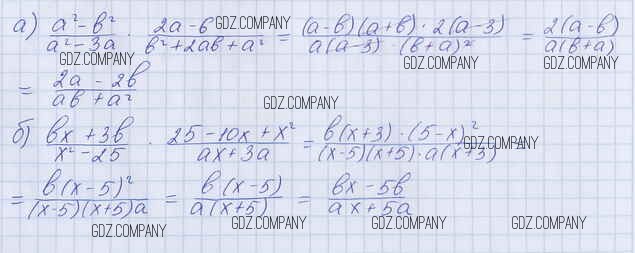 а) (a² - b²)/(a² - 3a) · (2a - 6)/(b² + 2ab + a²) = ((a-b)(a+b) · 2(a-3))/(a(a-3) · (b+a)²) = (2(a-b))/(a(b+a))
= (2a - 2b)/(ab + a²)
б) (bx + 3b)/(x² - 25) · (25 - 10x + x²)/(ax + 3a) = (b(x+3) · (5-x)²)/((x-5)(x+5) · a(x+3)) =
= (b(x-5)²)/((x-5)(x+5)a) = (b(x-5))/(a(x+5)) = (bx - 5b)/(ax + 5a)
GDZ.COMPANY
GDZ.COMPANY
GDZ.COMPANY
GDZ.COMPANY
GDZ.COMPANY
GDZ.COMPANY
GDZ.COMPANY
GDZ.COMPANY
GDZ.COMPANY
GDZ.COMPANY